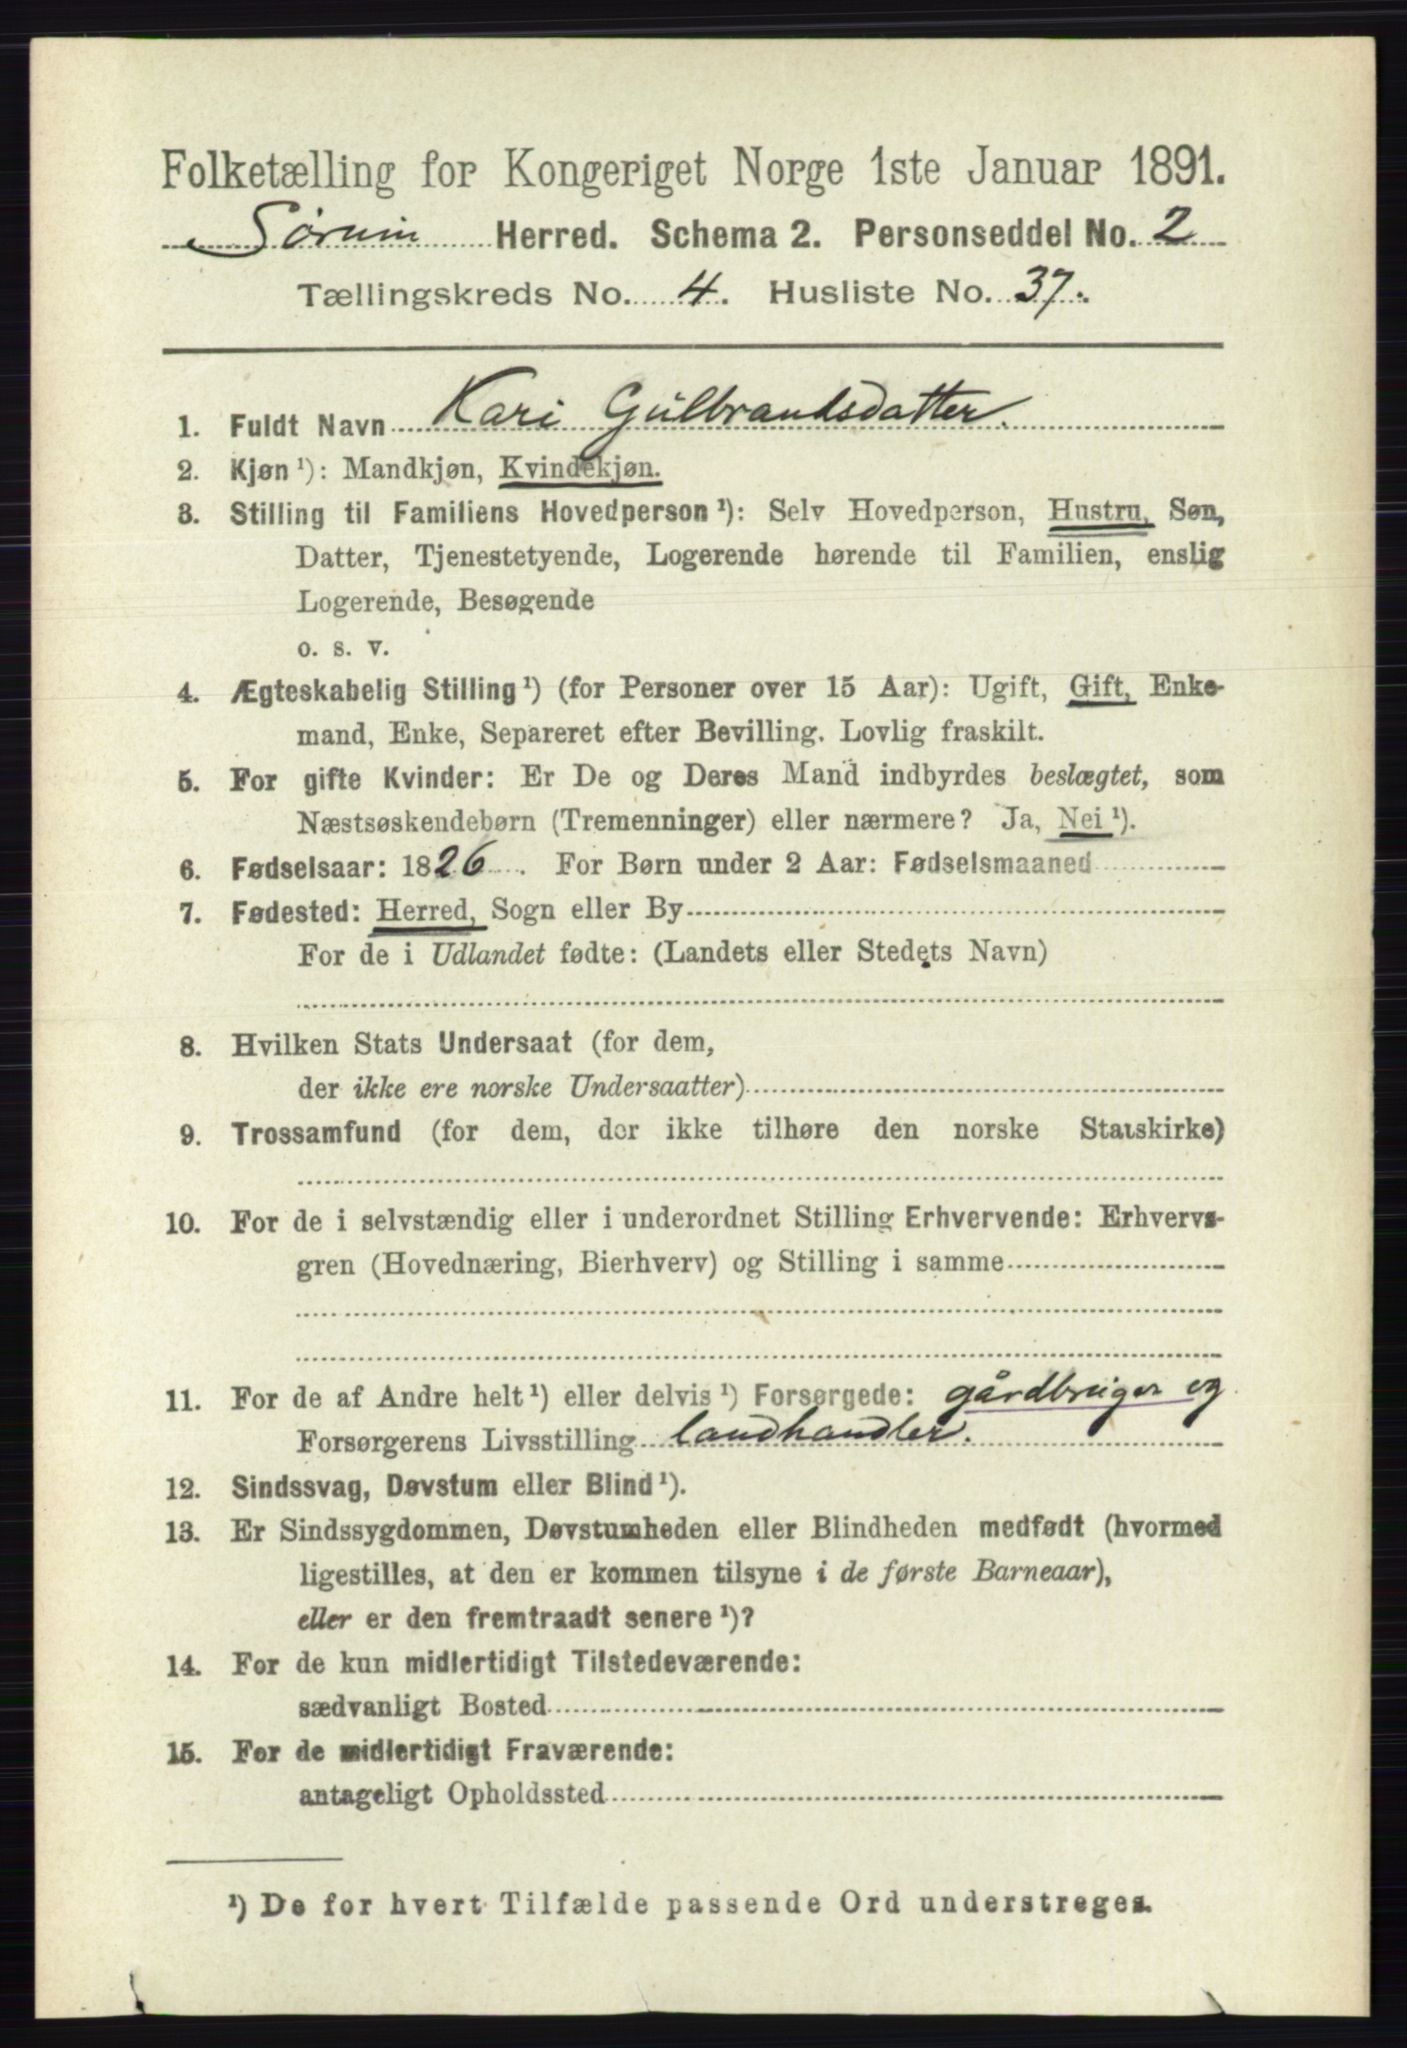 Folketælling for Kongeriget Norge 1ste Januar 1891.
Sørum Herred. Schema 2. Personseddel No. 2
Tællingskreds No. 4. Husliste No. 37.
1. Fuldt Navn Kari Gulbrandsdatter.
2. Kjøn ¹): Mandkjøn, Kvindekjøn.
3. Stilling til Familiens Hovedperson ¹): Selv Hovedperson, Hustru, Søn,
Datter, Tjenestetyende, Logerende hørende til Familien, enslig
Logerende, Besøgende
o. s. v.
4. Ægteskabelig Stilling ¹) (for Personer over 15 Aar): Ugift, Gift, Enke-
mand, Enke, Separeret efter Bevilling. Lovlig fraskilt.
5. For gifte Kvinder: Er De og Deres Mand indbyrdes beslægtet, som
Næstsøskendebørn (Tremenninger) eller nærmere? Ja, Nei ¹).
6. Fødselsaar: 1826. For Børn under 2 Aar: Fødselsmaaned
7. Fødested: Herred, Sogn eller By
For de i Udlandet fødte: (Landets eller Stedets Navn)
8. Hvilken Stats Undersaat (for dem,
der ikke ere norske Undersaatter)
9. Trossamfund (for dem, der ikke tilhøre den norske Statskirke)
10. For de i selvstændig eller i underordnet Stilling Erhvervende: Erhvervs-
gren (Hovednæring, Bierhverv) og Stilling i samme
11. For de af Andre helt ¹) eller delvis ¹) Forsørgede: gårdbruger og
Forsørgerens Livsstilling landhandler.
12. Sindssvag, Døvstum eller Blind ¹).
13. Er Sindssygdommen, Døvstumheden eller Blindheden medfødt (hvormed
ligestilles, at den er kommen tilsyne i de første Barneaar),
eller er den fremtraadt senere ¹)?
14. For de kun midlertidigt Tilstedeværende:
sædvanligt Bosted
15. For de midlertidigt Fraværende:
antageligt Opholdssted
¹) De for hvert Tilfælde passende Ord understreges.